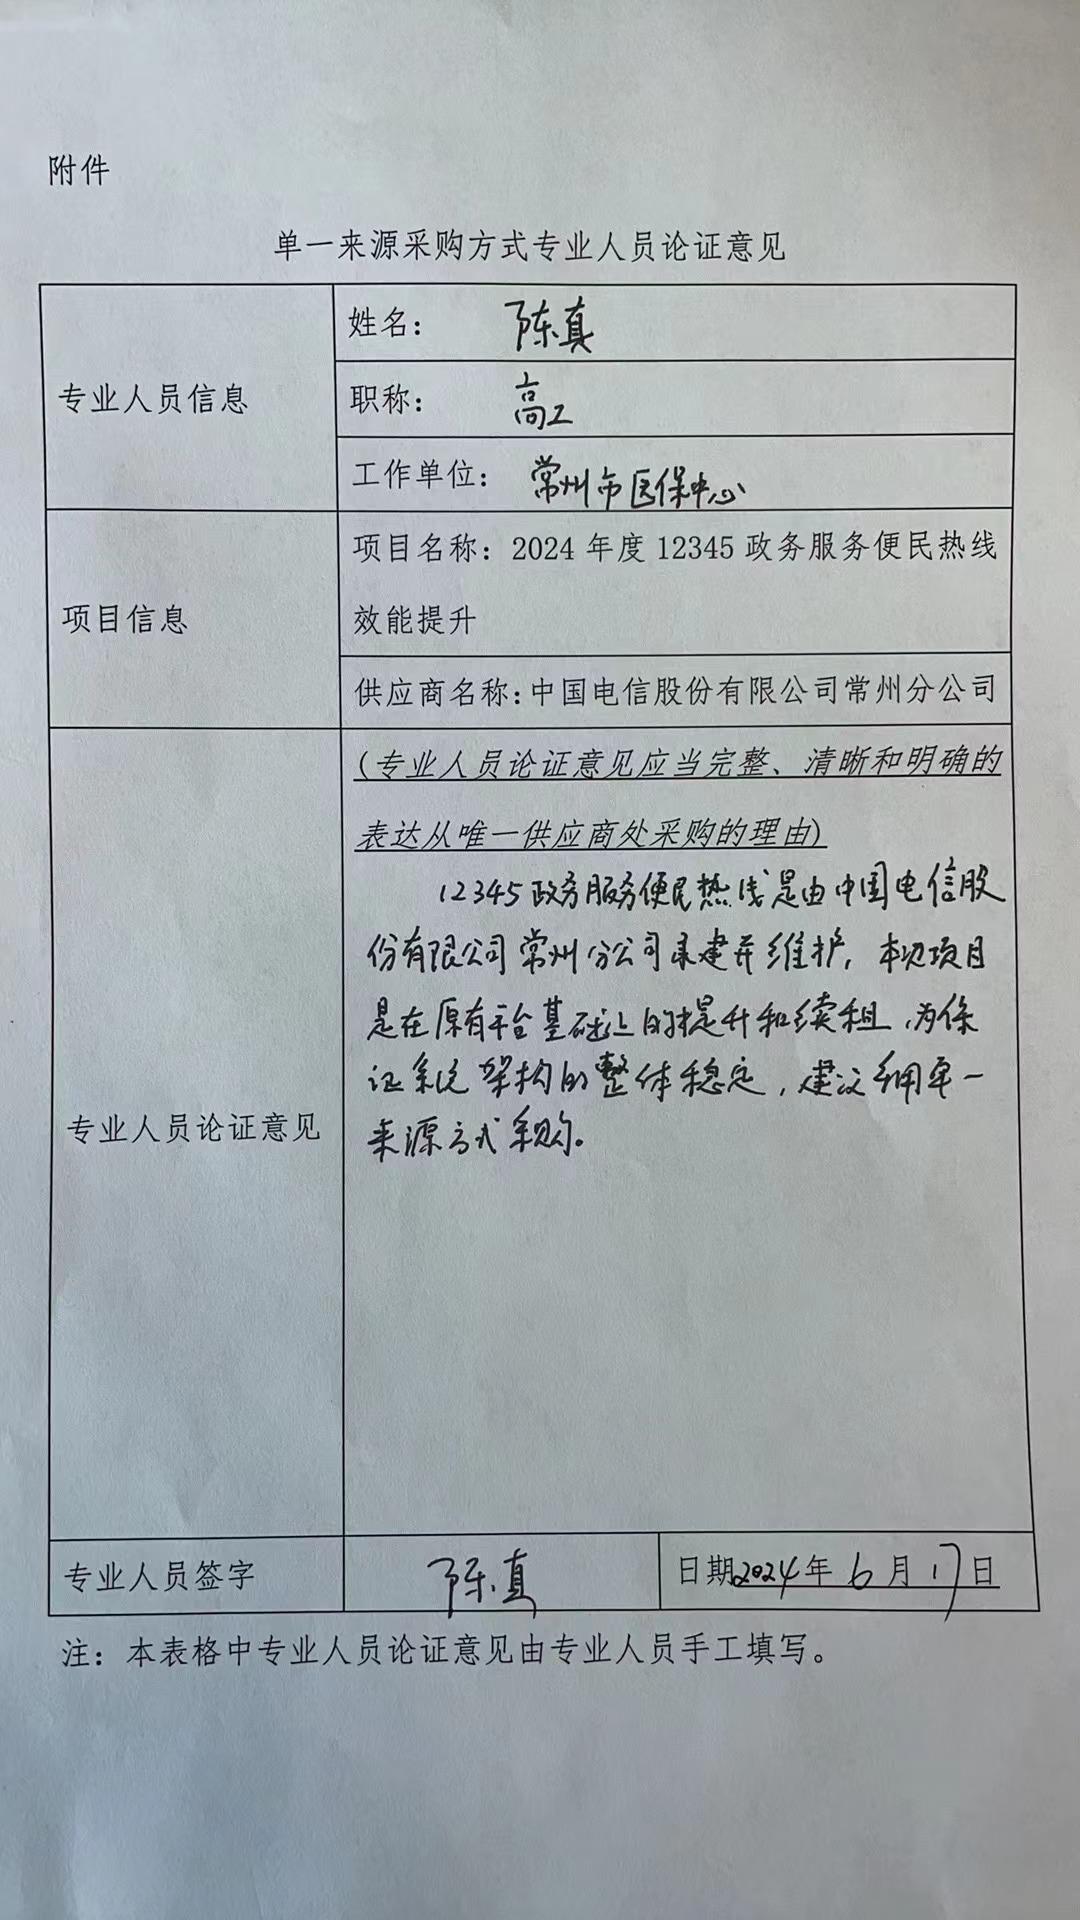 附件
单一来源采购方式专业人员论证意见
专业人员信息
姓名： 陈真
职称： 高工
工作单位： 常州市医保中心
项目信息
项目名称：2024 年度 12345 政务服务便民热线
效能提升
供应商名称：中国电信股份有限公司常州分公司
专业人员论证意见
(专业人员论证意见应当完整、清晰和明确的
表达从唯一供应商处采购的理由)
12345政务服务便民热线是由中国电信股
份有限公司常州分公司承建并维护，本次项目
是在原有平台基础上的提升和续租，为保
证系统架构的整体稳定，建议采用单一
来源方式采购。
专业人员签字
陈真
日期2024年 6 月 17日
注：本表格中专业人员论证意见由专业人员手工填写。